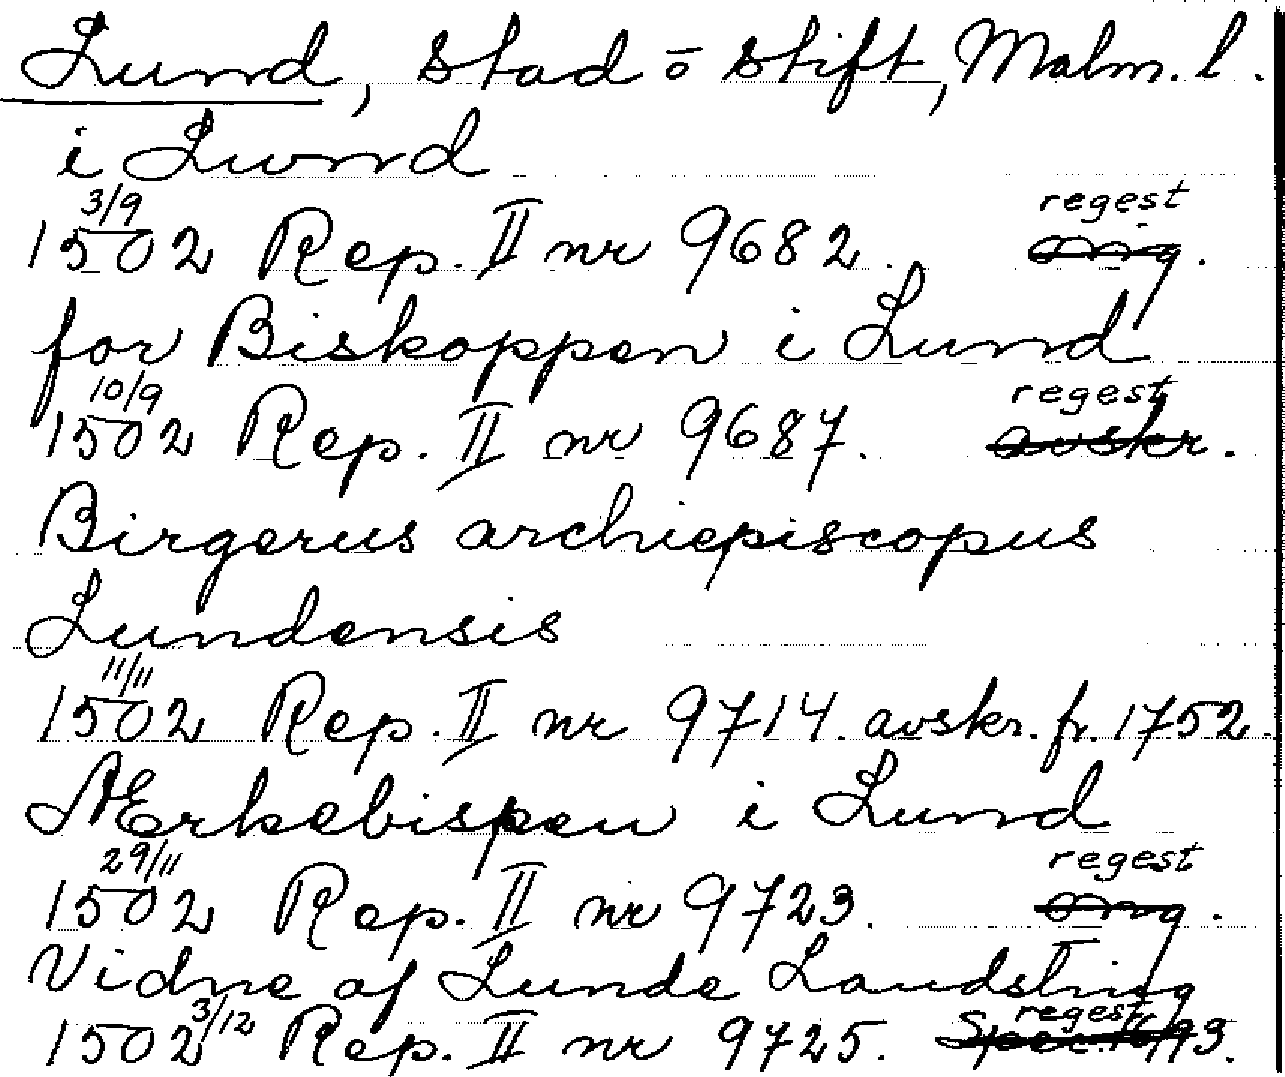 Lund, stad o stift, Malm. l.
i Lund
3/9
regest
1502 Rep. II nr 9682. orig.
for Biskoppen i Lund
10/9
regest
1502 Rep. II nr 9687. avskr.
Birgerus archiepiscopus
Lundensis
11/11
1502 Rep. II nr 9714. avskr. fr. 1752.
Ærkebispen i Lund
29/11
regest
1502 Rep. II nr 9723. orig.
Vidne af Lunde Landsting
3/12
regest
1502 Rep. II nr 9725.